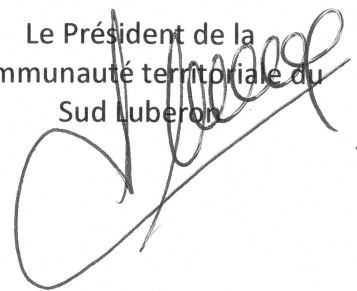 Le Président de la
mmunauté territoriale du
Sud Luberon